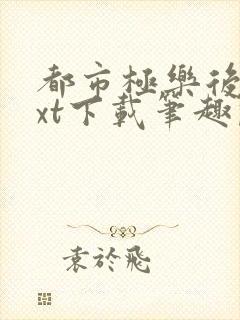 都市極樂後
xt下載筆趣
袁於飛